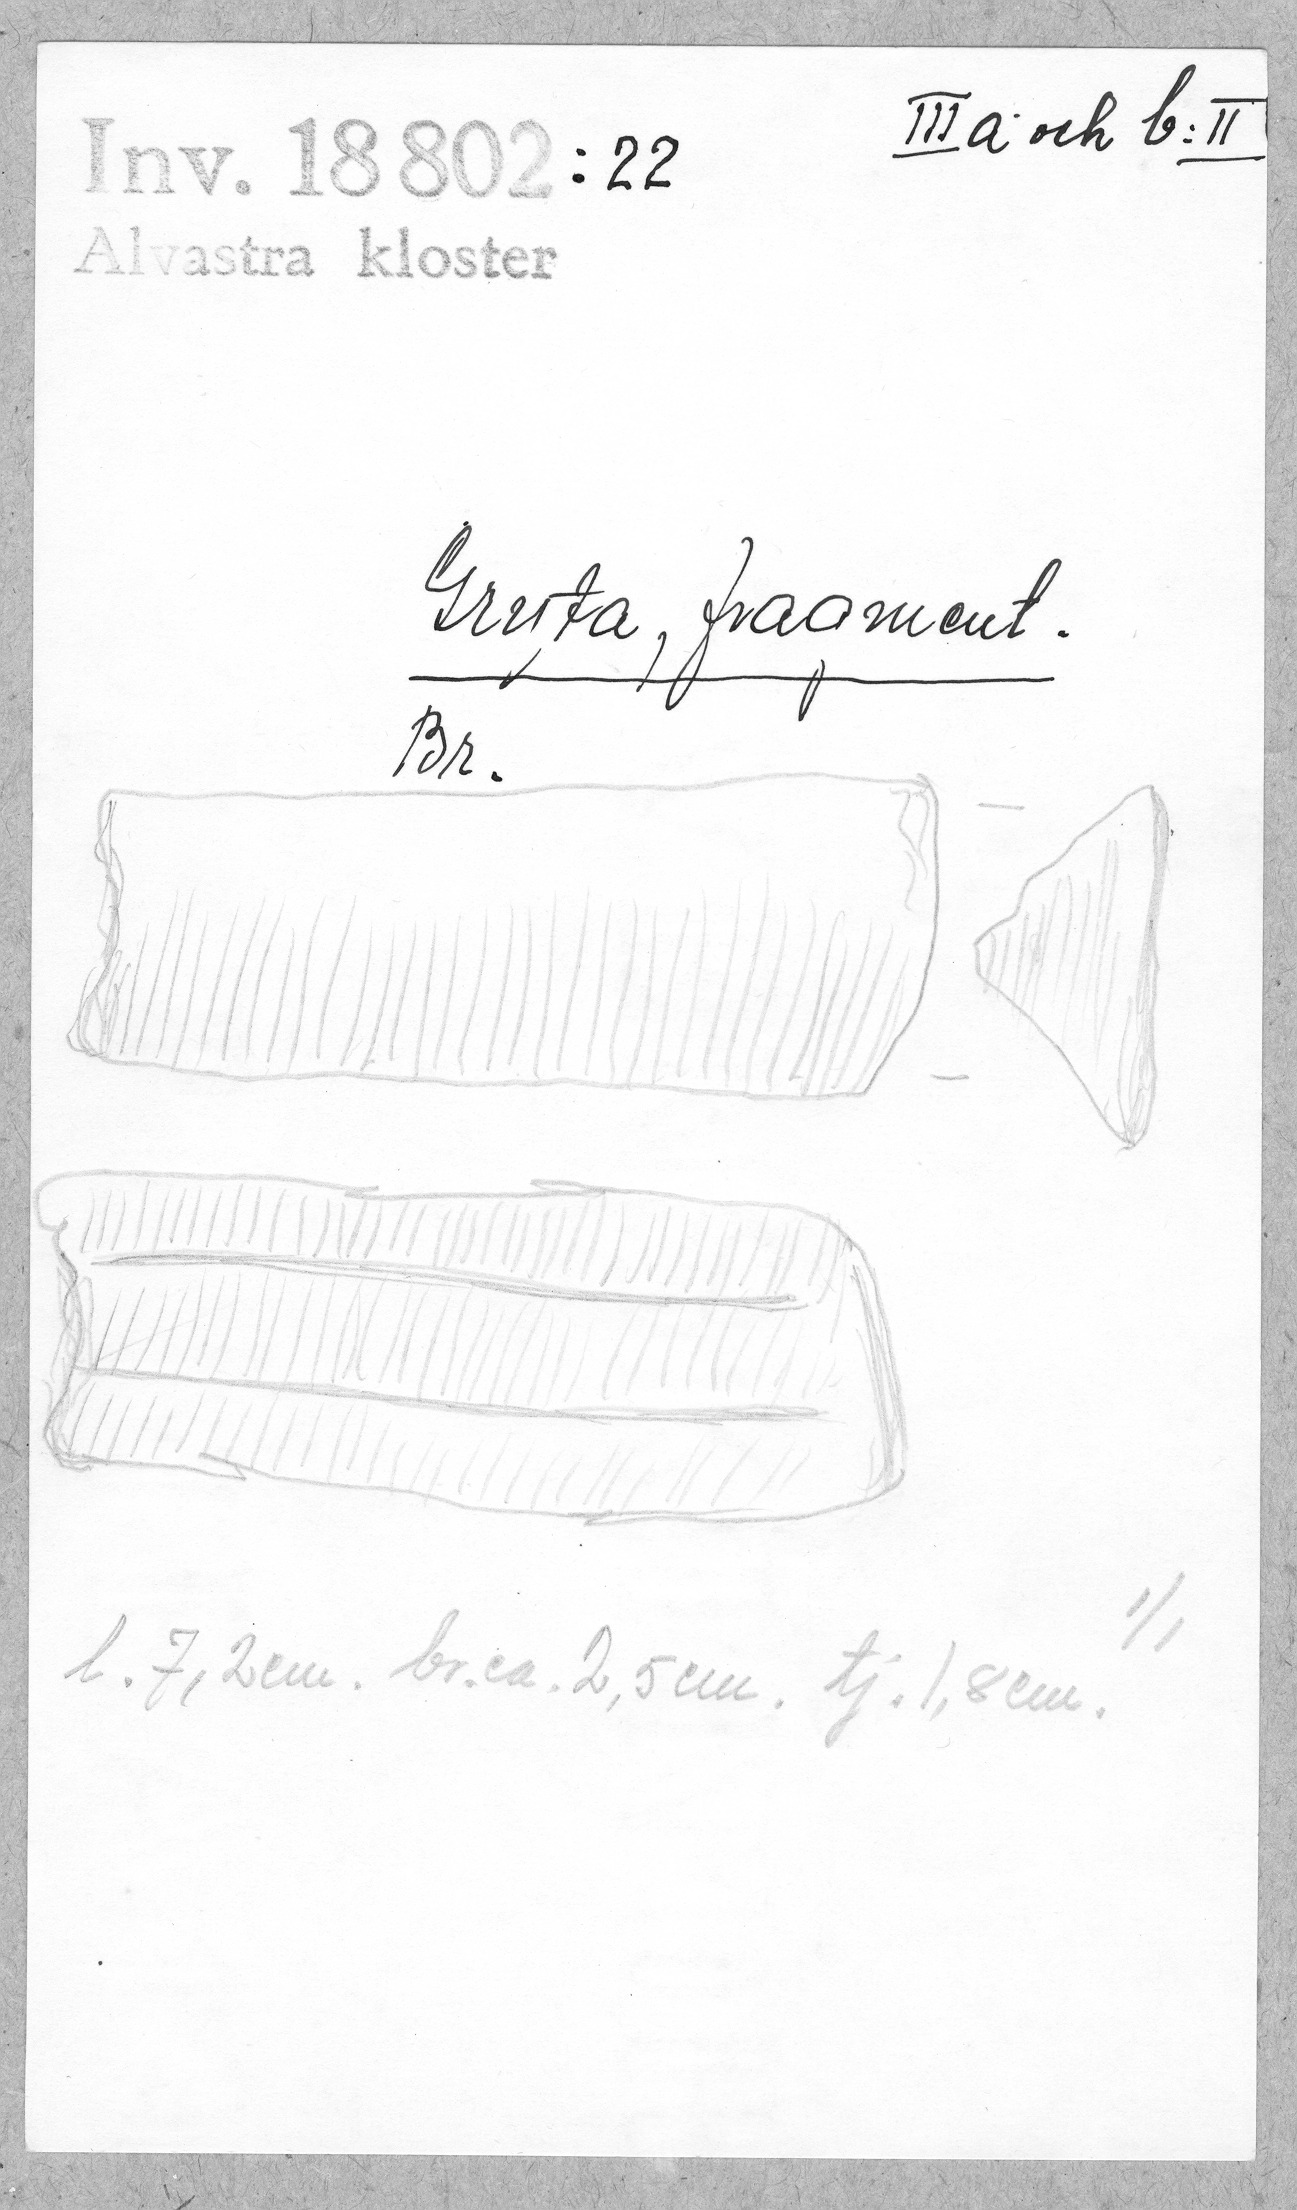 Inv. 18 802 : 22
III a och b: II
Alvastra kloster
Gryta, fragment.
Br.
1/1
l. 7,2 cm. br. ca. 2,5 cm. tj. 1,8 cm.